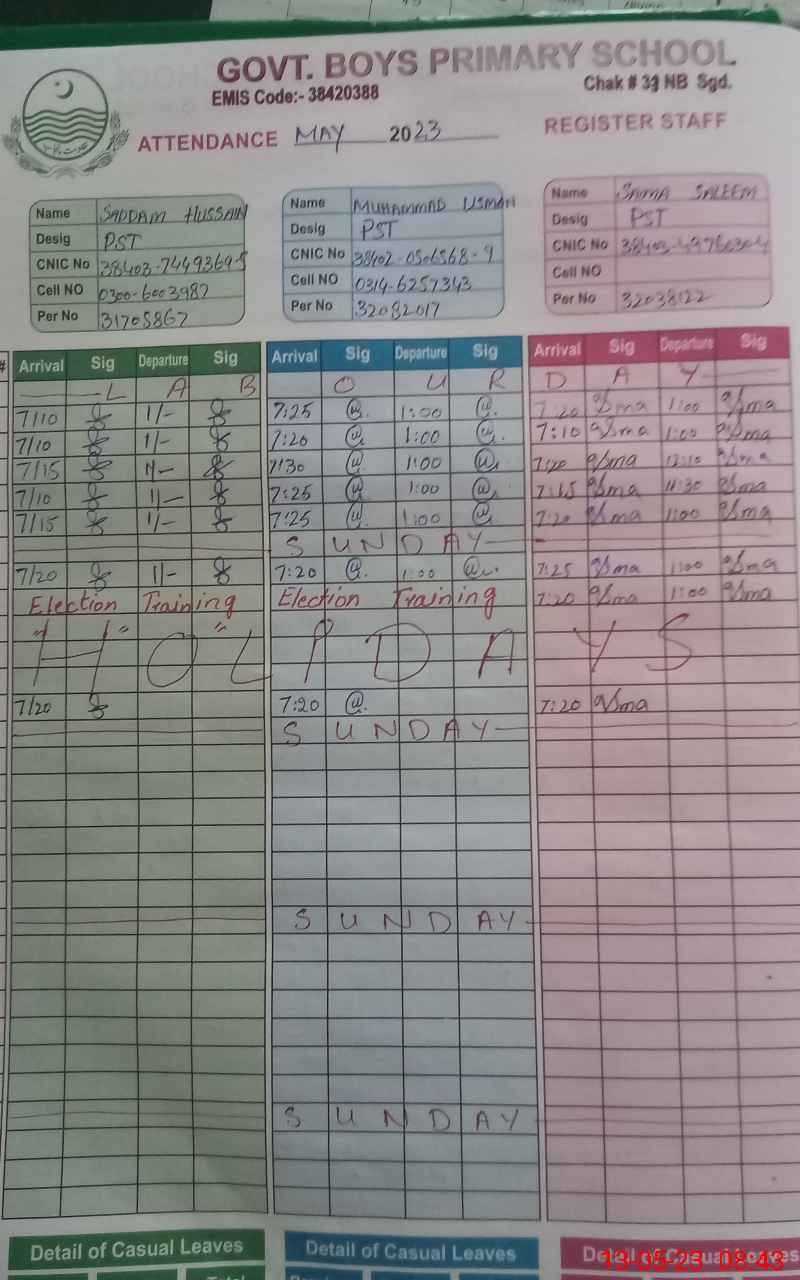 GOVT. BOYS PRIMARY SCHOOL
EMIS Code:- 38420388
Chak # 39 NB Sgd.
ATTENDANCE MAY 2023 REGISTER STAFF
Name SADDAM HUSSAIN
Desig PST
CNIC No 38403-7449369-5
Cell NO 0300-6003987
Per No 31705867
Name MUHAMMAD USMAN
Desig PST
CNIC No 38402-0506568-9
Cell NO 0314-6257343
Per No 32082017
Name SAIMA SALEEM
Desig PST
CNIC No
Cell NO
Per No 32038122
# Arrival Sig Departure Sig Arrival Sig Departure Sig Arrival Sig Departure Sig
L A B O U R D A Y
7/10 1/- 7:25 @. 1:00 @. 7:20 1:00
7/10 1/- 7:20 @. 1:00 @. 7:10 1:00
7/15 1/- 7:30 @. 1:00 @. 7:20 12:10
7/10 1/- 7:25 @ 1:00 @ 7:15 11:30
7/15 1/- 7:25 @. 1:00 @ 7:20 1:00
SUNDAY
7/20 1/- 7:20 @. 1:00 @. 7:25 1:00
Election Training Election Training 7:20 1:00
" " HOLIDAYS
7/20 7:20 @. 7:20
SUNDAY
SUNDAY
SUNDAY
Detail of Casual Leaves Detail of Casual Leaves Detail of Casual Leaves
Total
13-05-23 08:43